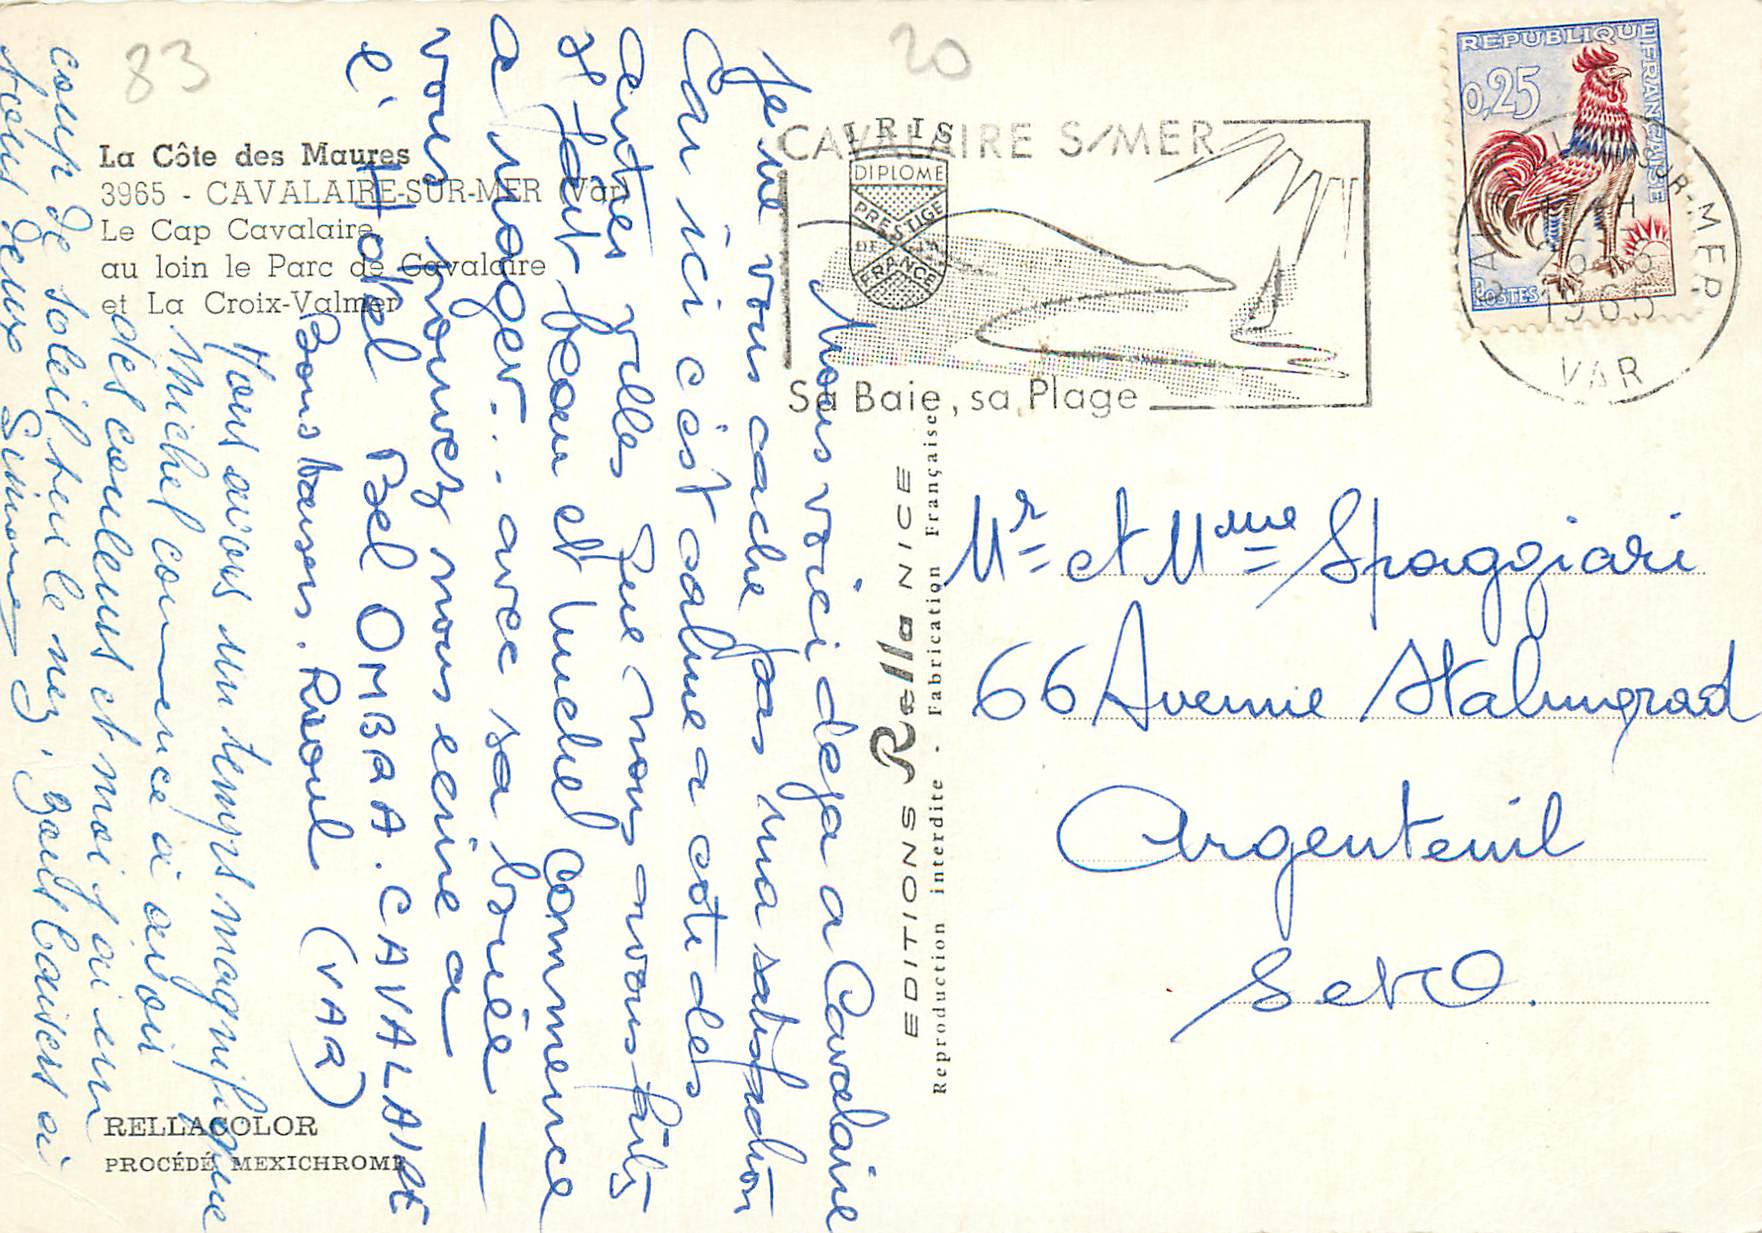 83
20
La Côte des Maures
3965 - CAVALAIRE-SUR-MER (Var)
Le Cap Cavalaire,
au loin le Parc de Cavalaire
et La Croix-Valmer
IRIS
DIPLOME
PRESTIGE
DE LA
FRANCE
CAVALAIRE S/MER
Sa Baie, sa Plage
REPUBLIQUE FRANCAISE
0,25
POSTES
SUR-MER
1965
VAR
Nous voici deja a Cavalaire
Je ne vous cache pas ma satisfaction
Car ici c'est calme a coté des
autres villes que nous avons faits
Il fait beau et Michel commence
a nager... avec sa bouée —
vous pouvez nous ecrire a
l'Hotel BEL OMBRA. CAVALAIRE
(VAR)
Bons baisers. Raoul
Nous avons un temps magnifique
Michel commence à avoir
des couleurs et moi j'ai un
coup de soleil sur le nez. Bons Baisers à
tous deux Simone
EDITIONS Rella NICE
Reproduction interdite - Fabrication Française
RELLACOLOR
PROCÉDÉ MEXICHROME
Mr et Mme Spaggiari
66 Avenue Stalingrad
Argenteuil
S et O.